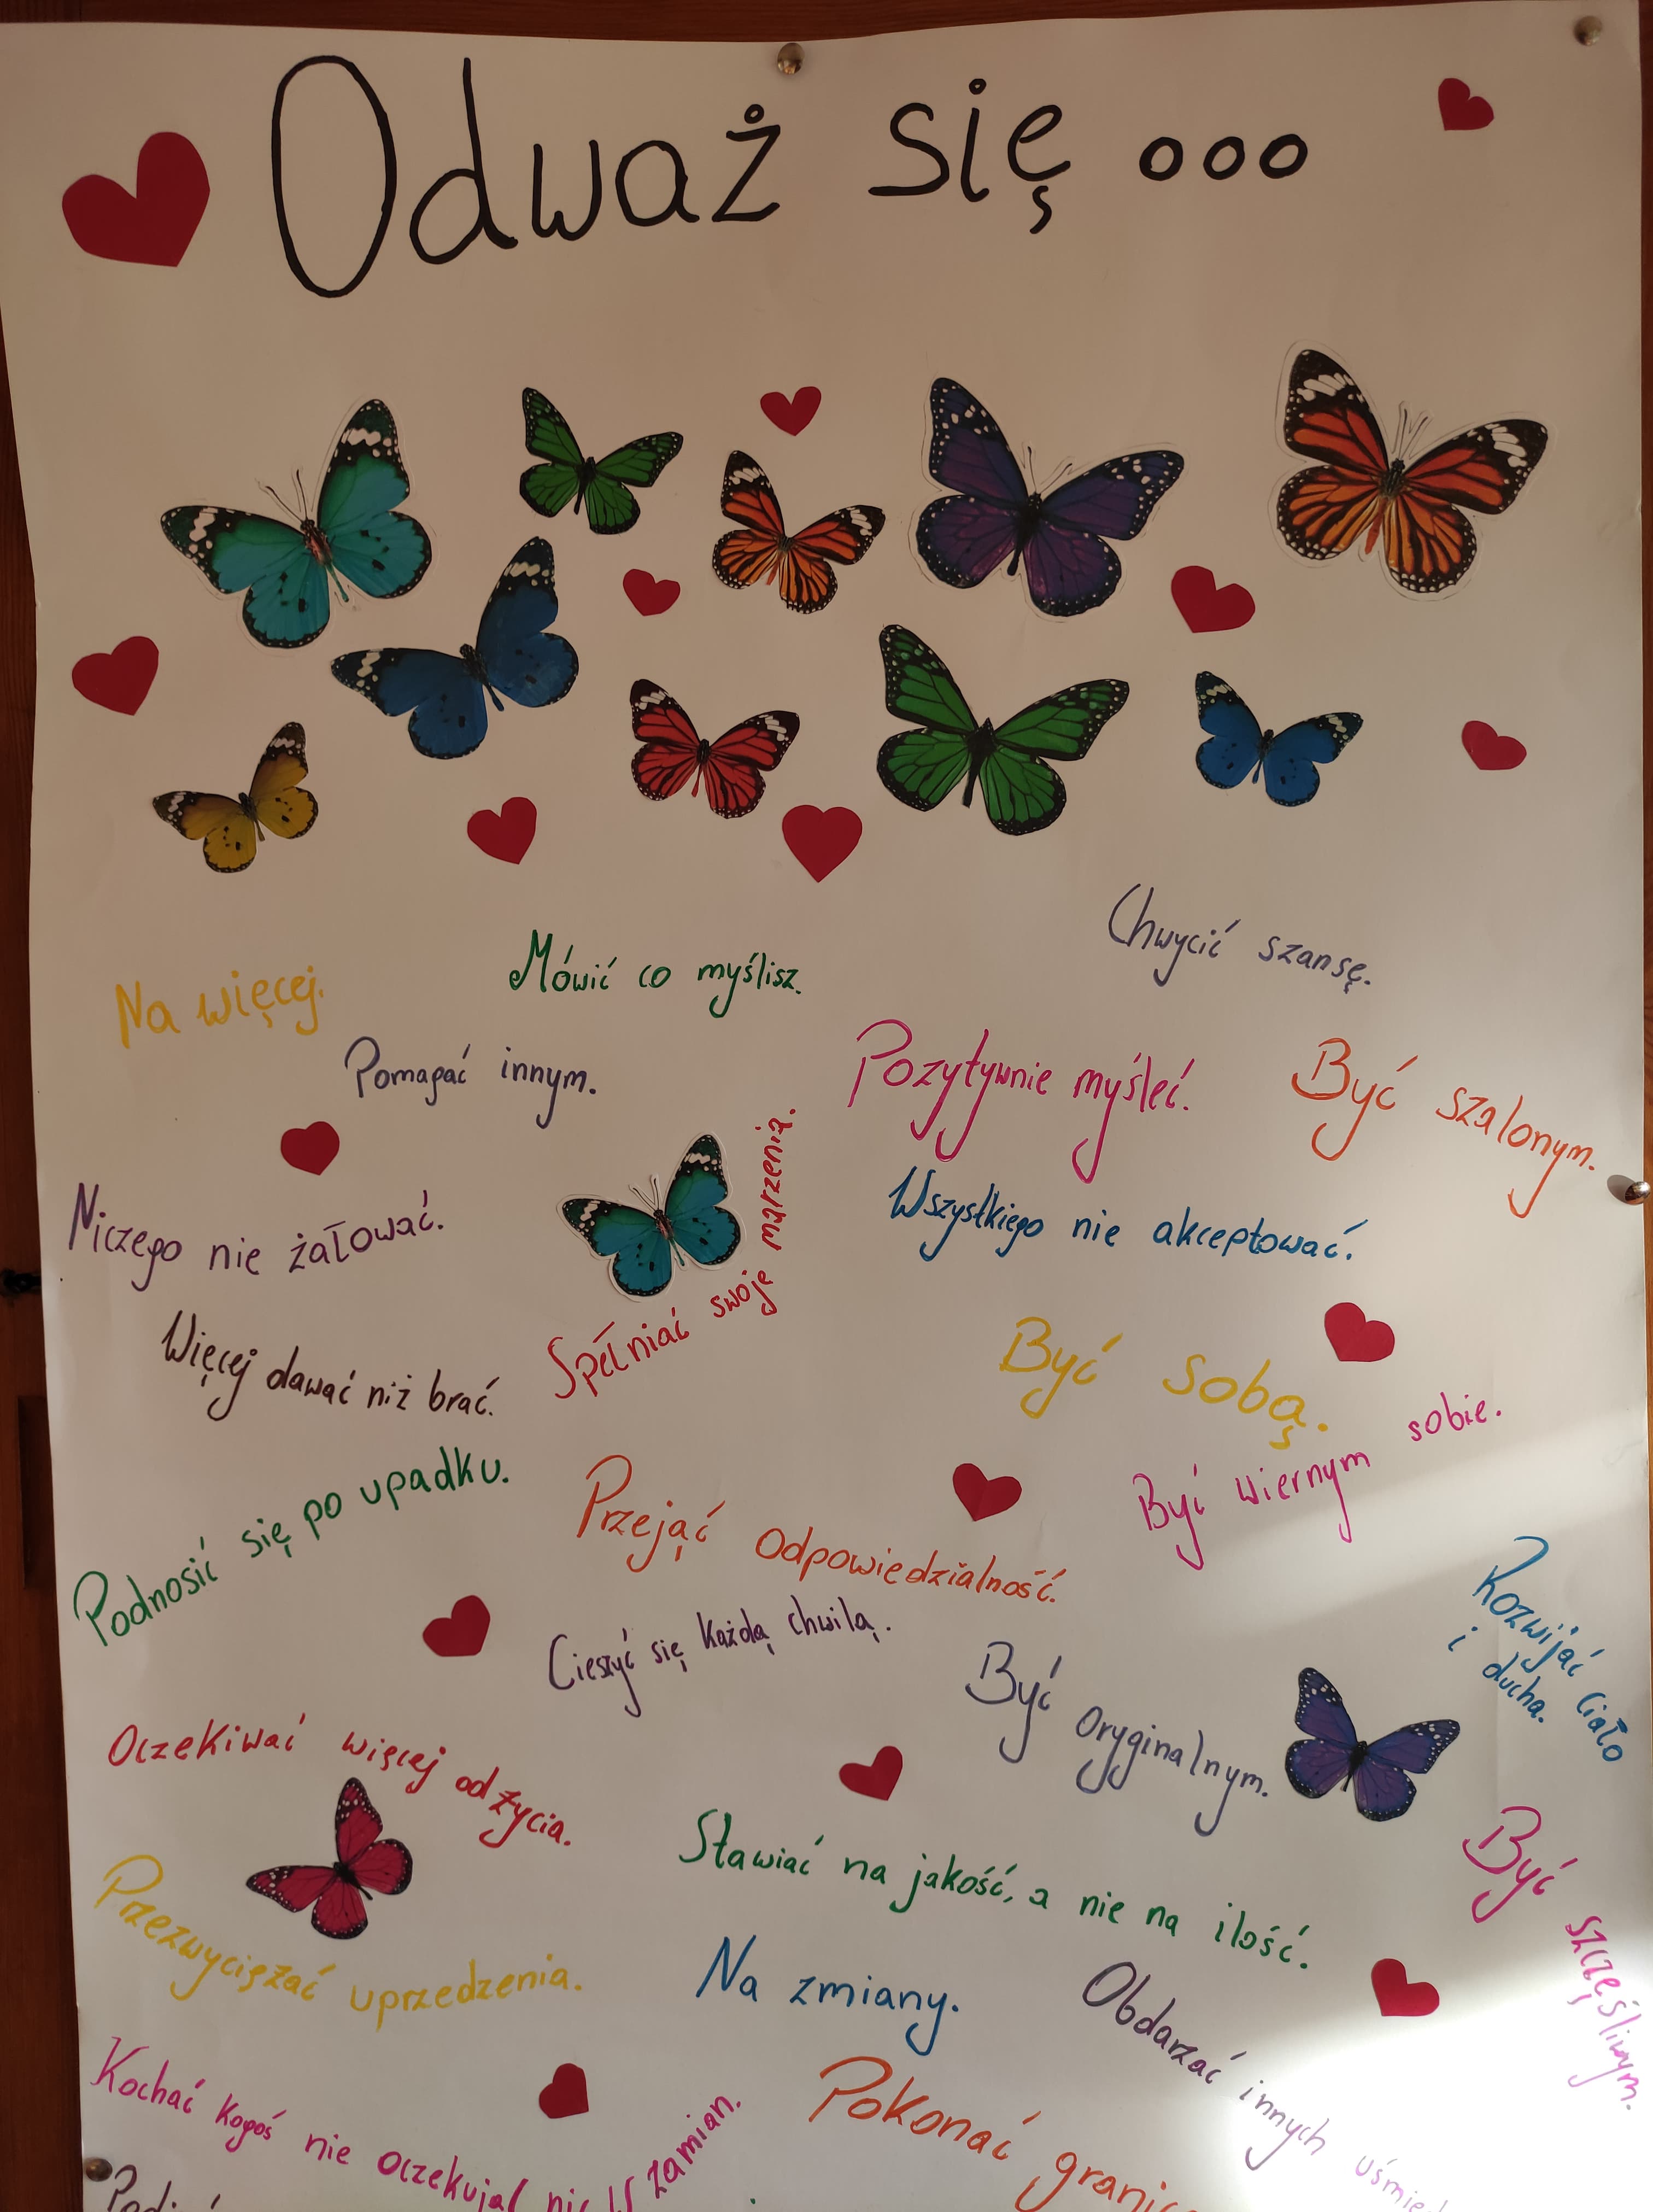 Odważ się ...
Chwycić szansę.
Mówić co myślisz.
Na więcej.
Pomagać innym.
Pozytywnie myśleć.
Być szalonym.
Niczego nie żałować.
Spełniać swoje marzenia.
Wszystkiego nie akceptować.
Więcej dawać niż brać.
Być sobą.
Być wiernym sobie.
Podnosić się po upadku.
Przejąć odpowiedzialność.
Rozwijać ciało
i ducha.
Cieszyć się każdą chwilą.
Być oryginalnym.
Oczekiwać więcej od życia.
Stawiać na jakość, a nie na ilość.
Być szczęśliwym.
Przezwyciężać uprzedzenia.
Na zmiany.
Obdarzać innych
Kochać kogoś nie oczekując nic w zamian.
Pokonać